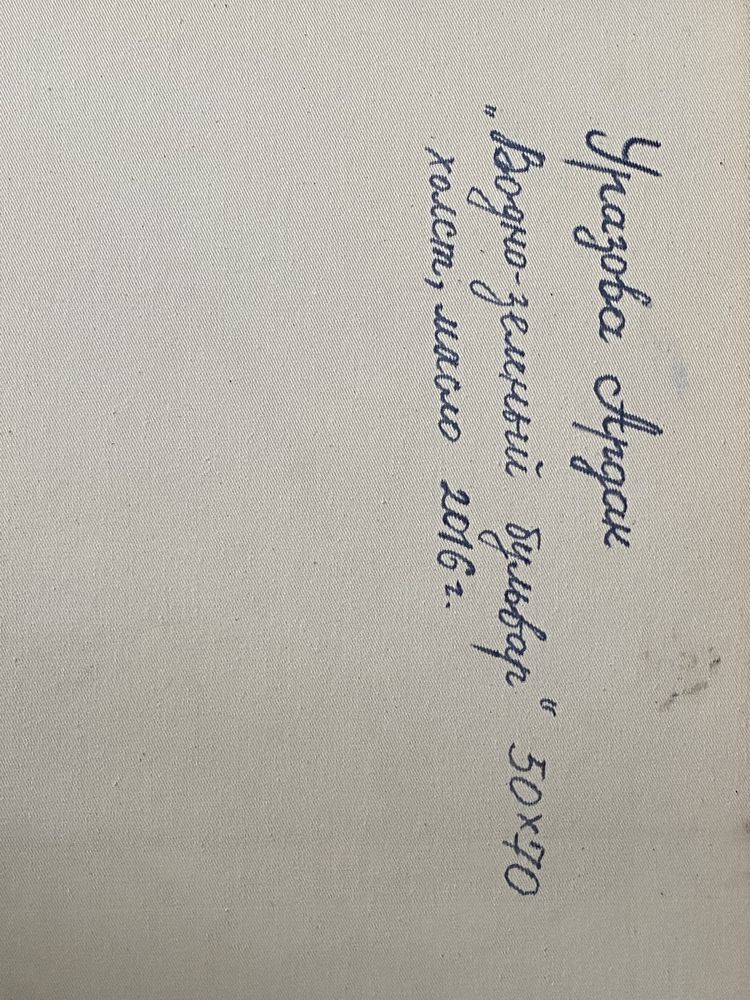 Уразова Ардак
„Водно-зеленый бульвар" 50×70
холст, масло 2016 г.